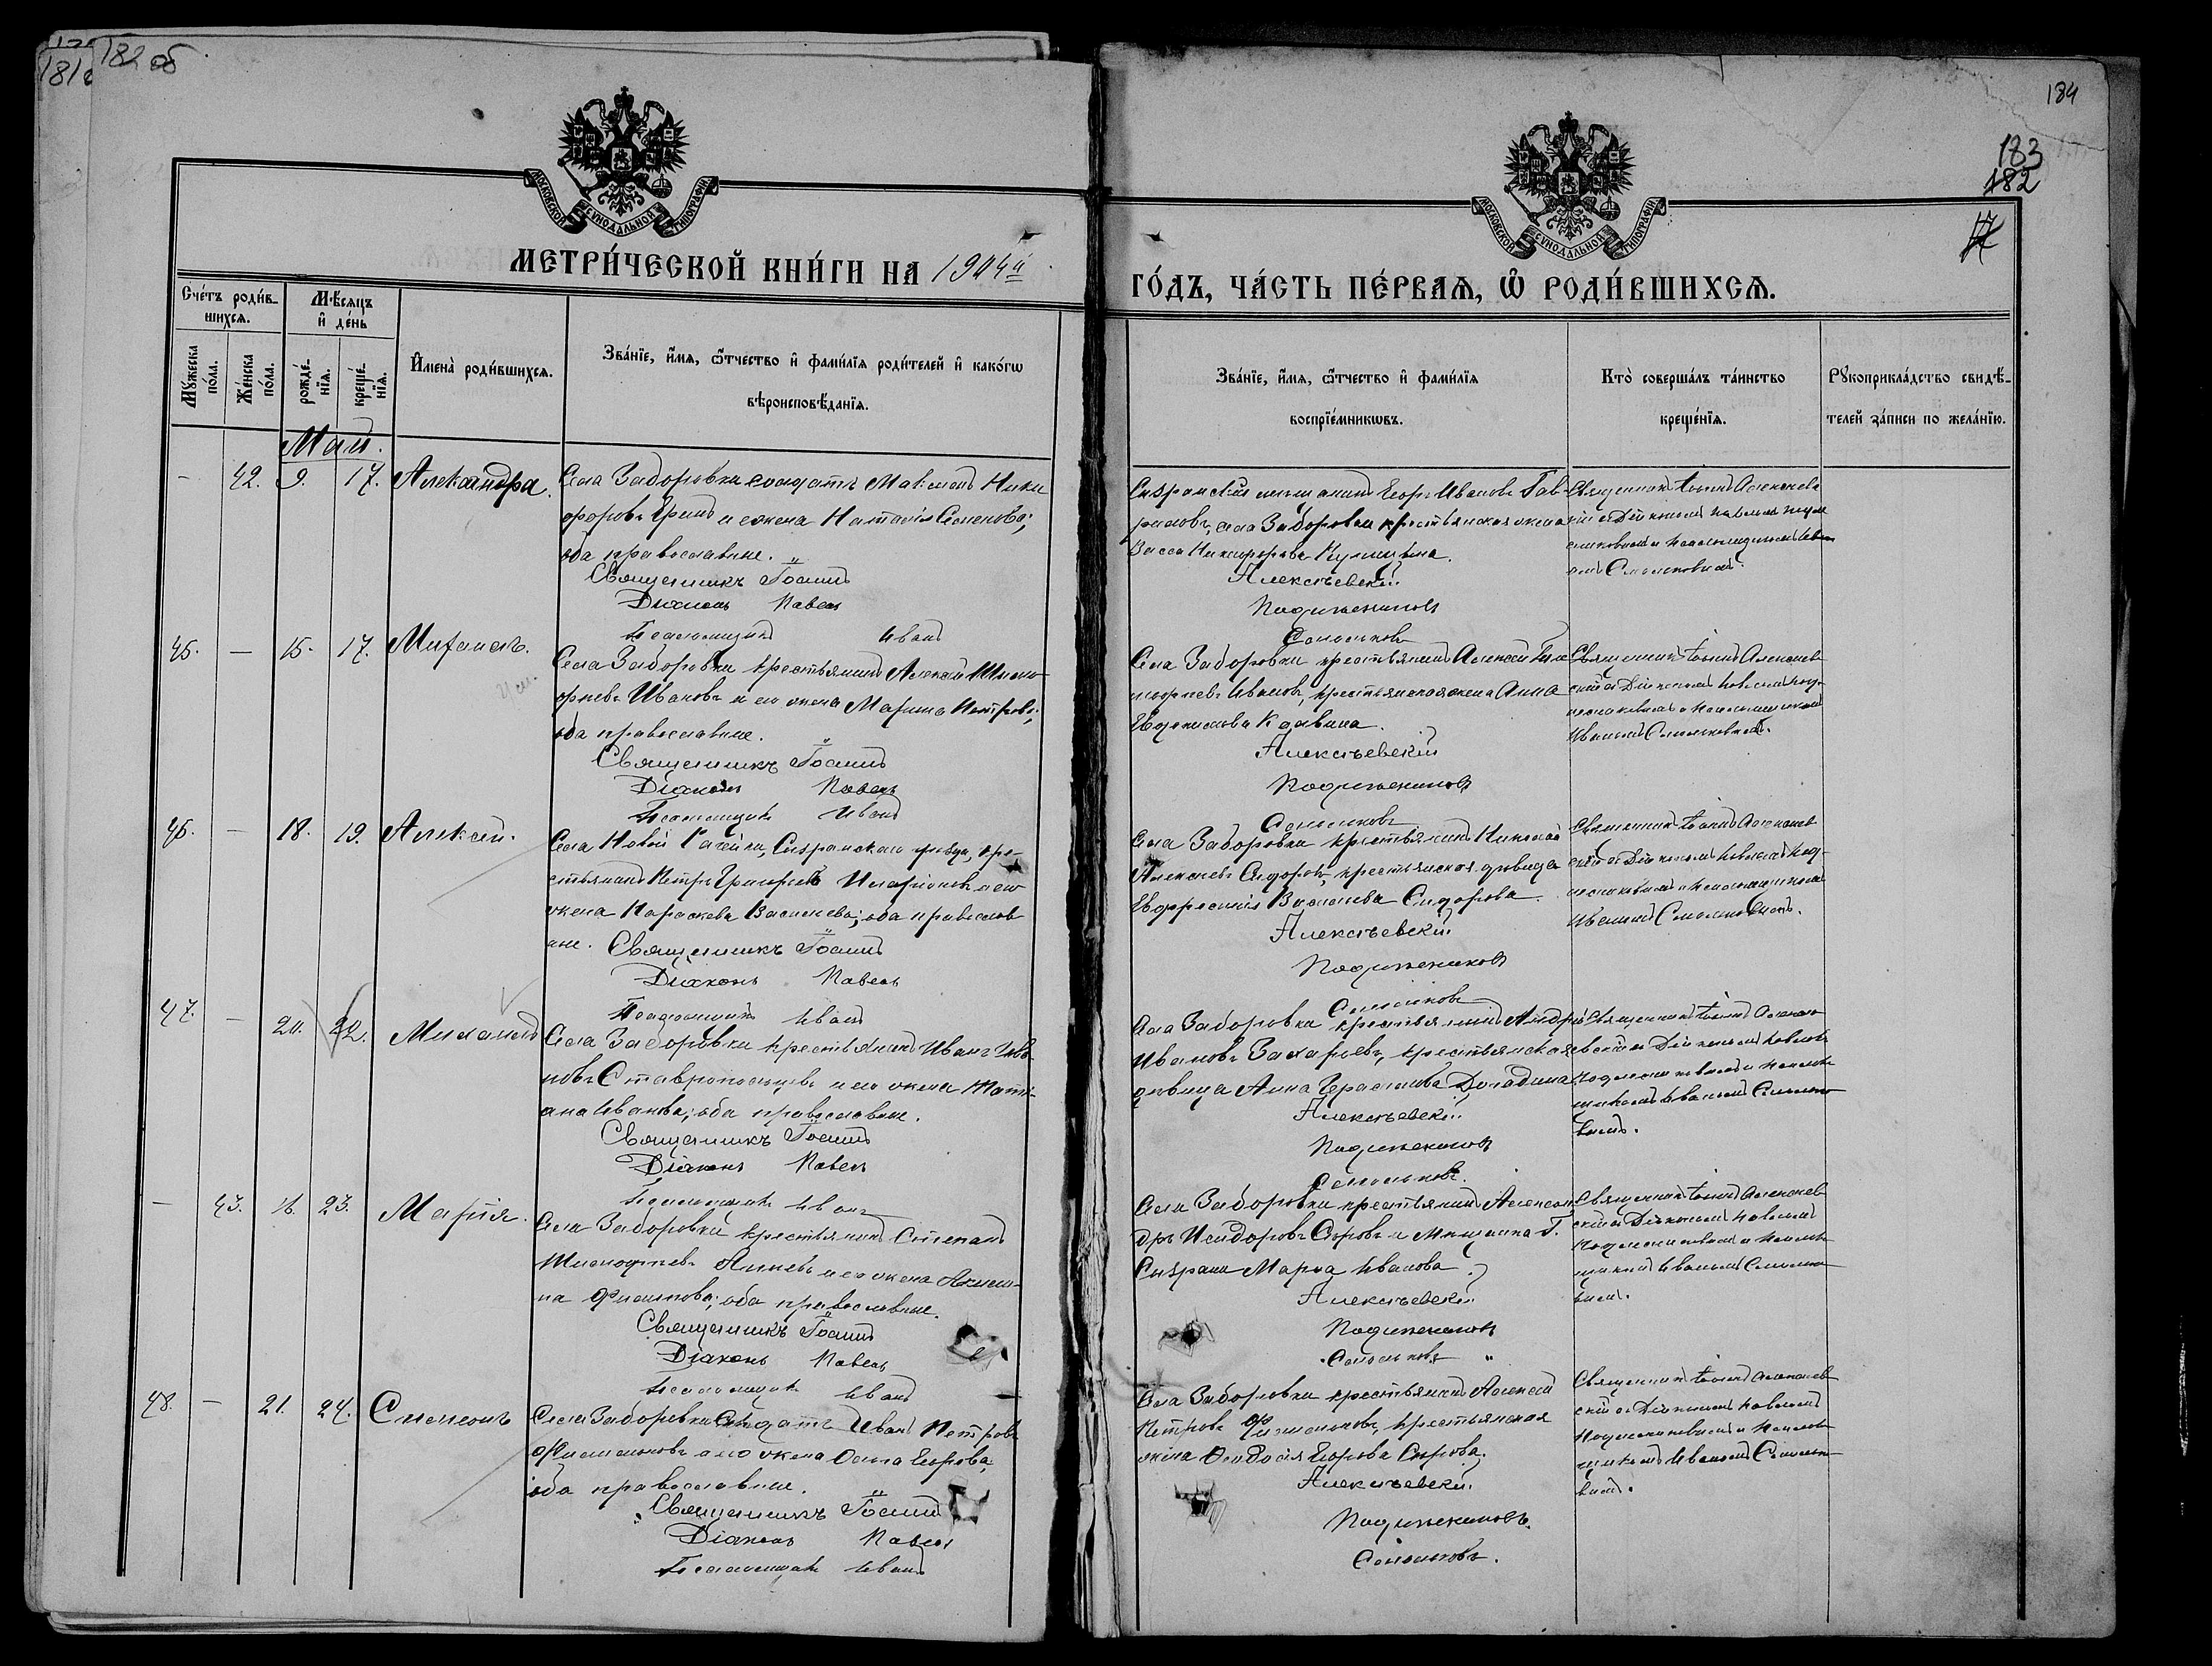 182 об
181
184
183
182
МОСКОВСКОЙ СѴНОДАЛЬНОЙ ТИПОГРАФІИ
МОСКОВСКОЙ СѴНОДАЛЬНОЙ ТИПОГРАФІИ
МЕТРИ́ЧЕСКОЙ КНИ́ГИ НА 1904й
ГО́ДЪ, ЧА́СТЬ ПЕ́РВАѦ, Ѽ РОДИ́ВШИХСѦ.
Сче́тъ роди́в-
шихсѧ.
Мѣ́сѧцъ
и҆ де́нь
Мꙋ́жеска
по́ла.
Же́нска
по́ла.
рожде́-
нїѧ.
креще́-
нїѧ.
И҆мена̀ роди́вшихсѧ.
Зва́нїе, и҆́мѧ, ѻ҆́тчество и҆ фами́лїѧ роди́телей и҆ како́гѡ
вѣроисповѣ́данїѧ.
Зва́нїе, и҆́мѧ, ѻ҆́тчество и҆ фами́лїѧ
воспрїе́мникѡвъ.
Кто̀ соверша́лъ та́инство
креще́нїѧ.
Рꙋкоприкла́дство свидѣ́-
телей за́писи по жела́нїю.
Май.
— 42. 9. 17. Александра.
Села Заборовки солдатъ Максимъ Ники
форовъ Гринъ и жена Наталія Семенова;
оба православные.
Священникъ Іоаннъ
Діаконъ Павелъ
Псаломщикъ Иванъ
Сызранскій мѣщанинъ Егоръ Ивановъ Гав-
риловъ, села Заборовки крестьянская жена
Васса Никифорова
Алексѣевскій
Подлѣсниковъ
Смольковъ
Священникъ Іоаннъ Алексѣев
скій съ Діакономъ Павломъ Подлѣ
сниковымъ и Псаломщикомъ Иван
омъ Смольковымъ.
45. — 15. 17. Михаилъ.
Села Заборовки крестьянинъ Алексѣй Тимо-
фѣевъ Ивановъ и его жена Марина Петрова;
оба православные.
Священникъ Іоаннъ
Діаконъ Павелъ
Псаломщикъ Иванъ
Села Заборовки крестьянинъ Алексѣй Ти
мофѣевъ Ивановъ, крестьянская жена Анна
Евдокимова
Алексѣевскій
Подлѣсниковъ
Смольковъ
Священникъ Іоаннъ Алексѣев
скій съ Діакономъ Павломъ Под-
лѣсниковымъ и Псаломщикомъ
Иваномъ Смольковымъ.
46. — 18. 19. Алексѣй.
Села Новой Рачейки, Сызранскаго уѣзда, кре-
стьянинъ Петръ Григорьевъ Иларіоновъ и его
жена Параскева Васильева; оба православ
ные. Священникъ Іоаннъ
Діаконъ Павелъ
Псаломщикъ Иванъ
Села Заборовки крестьянинъ Николай
Алексѣевъ Сидоровъ, крестьянская дѣвица
Евфросинія Васильева Сидорова.
Алексѣевскій
Подлѣсниковъ
Смольковъ
Священникъ Іоаннъ Алексѣев
скій съ Діакономъ Павломъ Под-
лѣсниковымъ и Псаломщикомъ
Иваномъ Смольковымъ.
47. — 20. 22. Михаилъ
Села Заборовки крестьянинъ Иванъ Ива
новъ Ставропольцевъ и его жена Тати-
ана Иванова; оба православные.
Священникъ Іоаннъ
Діаконъ Павелъ
Псаломщикъ Иванъ
Села Заборовки крестьянинъ Андрей
Ивановъ Захаровъ, крестьянская
дѣвица Анна Герасимова
Алексѣевскій
Подлѣсниковъ
Смольковъ.
Священникъ Іоаннъ Алексѣ
евскій съ Діакономъ Павломъ
Подлѣсниковымъ и Псаломщ
икомъ Иваномъ Смолько
вымъ.
— 43. 16. 23. Марія.
Села Заборовки крестьянинъ Степанъ
Тимофѣевъ и его жена Акили-
на Филипова; оба православные.
Священникъ Іоаннъ
Діаконъ Павелъ
Псаломщикъ Иванъ
Села Заборовки крестьянинъ Алексан
дръ Исидоровъ Сыровъ и Мѣщанка г.
Сызрани Марѳа Иванова
Алексѣевскій
Подлѣсниковъ
Смольковъ
Священникъ Іоаннъ Алексѣев
скій съ Діакономъ Павломъ
Подлѣсниковымъ и Псаломщ
икомъ Иваномъ Смолько
вымъ.
48. — 21. 24. Симеонъ
Села Заборовки Солдатъ Иванъ Петровъ
Филимоновъ и его жена Ольга Егорова,
оба православные.
Священникъ Іоаннъ
Діаконъ Павелъ
Псаломщикъ Иванъ
Села Заборовки крестьянинъ Алексѣй
Петровъ Филимоновъ, крестьянская
жена Ѳеодосія Егорова Сырова.
Алексѣевскій
Подлѣсниковъ.
Смольковъ.
Священникъ Іоаннъ Алексѣев
скій съ Діакономъ Павломъ
Подлѣсниковымъ и Псаломщ
икомъ Иваномъ Смолько
вымъ.